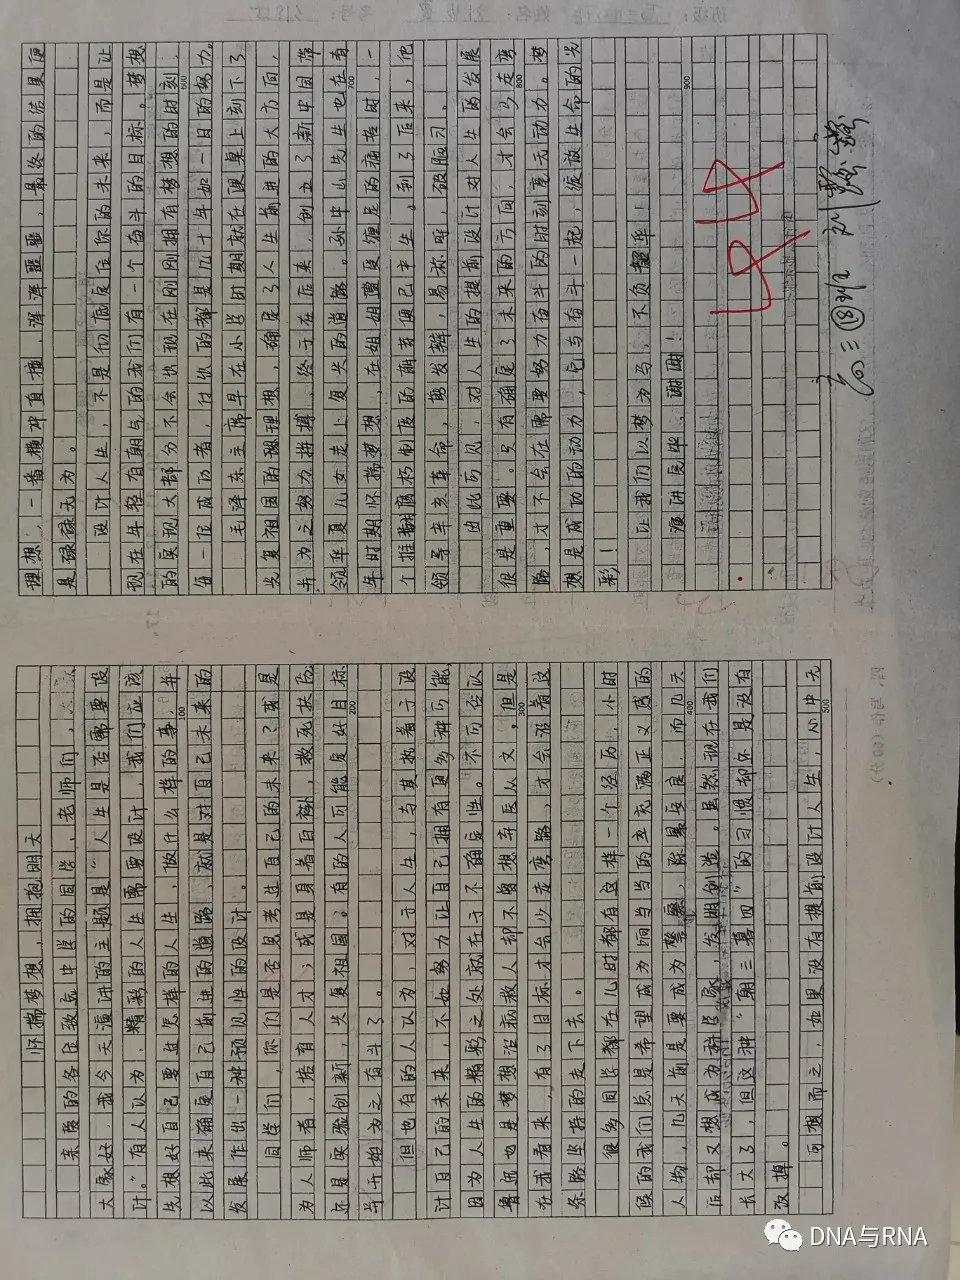 怀揣梦想，拥抱明天
亲爱的各位致远中学的同学、老师们，
大家好，我今天演讲的主题是“人生是否需要设
计。”有人认为，精彩的人生需要设计，我们应该
先想好自己要过怎样的人生，做什么样的事，并
以此来确定自己前进的道路，就是对自己未来的
发展作出一种预见性的设计。
同学们，你们是否思考过自己的未来？或是
为人师者，培育人才；或是身着白褂，救死扶伤
还是实验创新，兴复祖国？有的人可能定好目标
并开始为之奋斗了。
但也有的人认为，对于人生，与其执着于设
计自己的未来，不如努力让自己拥有更多种可能
因为人生的精彩之处就在于不确定性。不可否认
鲁迅也是梦想治病救人却不曾想弃医从文，但是
在我看来，有了目标才会少走弯路，才会沿着这
条路坚持的走下去。
很多同学都在儿时都有这样一个经历，小时
候的我们总是希望成为响当当的立充满正义感的
人物，几天前是要成为警察，除暴安良，而几天
后却又想成为科学家，发明创造。虽然现在我们
长大了，但这种“朝三暮四”的习惯却还是没有
改掉。
可想而之，如果没有提前设计人生，心中无
理想，一番横冲直撞，浑浑噩噩，最终的结果便
是碌碌无为。
设计人生，不是彻底定位你的未来，而是让
现在年轻有期与的我们有一个奋斗的目标。梦想
的实现大部分不会出现在刚刚拥有梦想的时刻，
每一位成功者，付出的都是几十年如一日的努力。
毛泽东主席早在小学时期就在课桌上刻下了
兴复祖国的理想，确定了人生前进的大方向，
并为之努力拼搏，终于在后来，创立了新中国带
领华夏儿女走上复兴的道路。孙中山先生也在青
年时期怀揣梦想，在姐姐遭受缠足的痛苦时，一
个推翻腐朽制度的萌芽便已产生。到了后来，他
领导辛亥革命，剪发辫，易称呼，破陋习。
由此可见，对人生的提前设计对人生的发展
很是重要。只有确定了未来的方向，才会少走弯
路，才不会在需要努力奋斗的时刻毫无动力。梦
想是成功的动力，它与奋斗一起，绽放生命的光
彩！
让我们以梦为马，不负韶华！
演讲完毕，谢谢！
100
200
300
400
500
600
700
800
900
四、写作（60分）
DNA与RNA